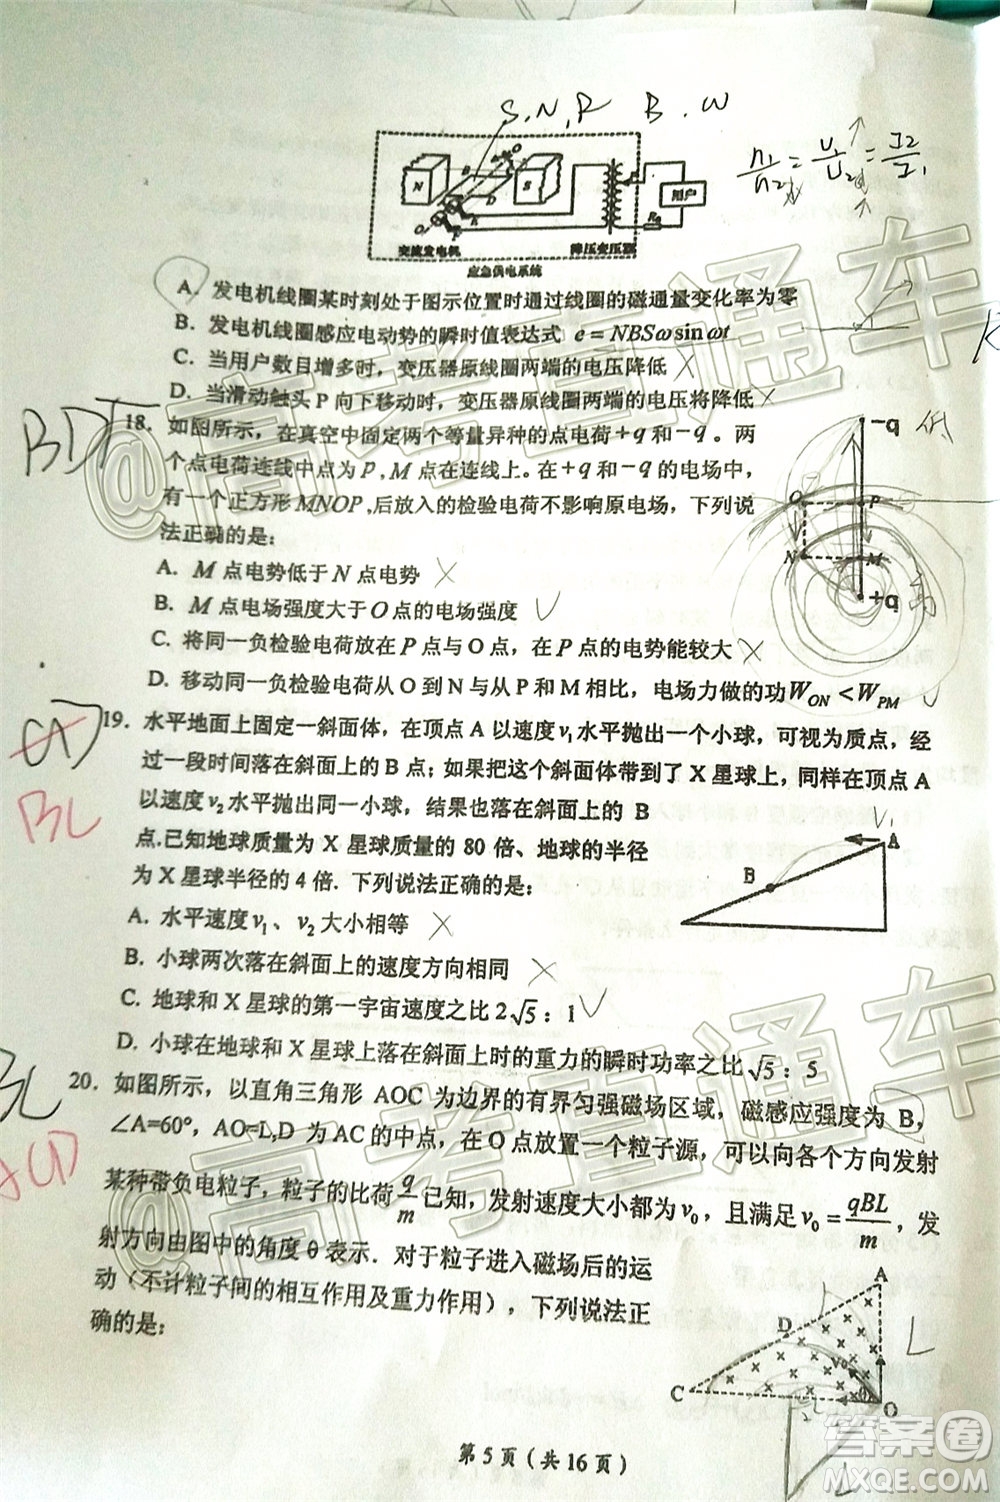 S, N, R B. ω
n1/n2 = U1/U2 = I2/I1
N
S
用户
R0
交流发电机
降压变压器
应急供电系统
A. 发电机线圈某时刻处于图示位置时通过线圈的磁通量变化率为零
B. 发电机线圈感应电动势的瞬时值表达式 e = NBSω sin ωt
C. 当用户数目增多时, 变压器原线圈两端的电压降低
D. 当滑动触头 P 向下移动时, 变压器原线圈两端的电压将降低
BD
18. 如图所示, 在真空中固定两个等量异种的点电荷+q 和−q, 两
个点电荷连线中点为 P, M 点在连线上. 在+q 和−q 的电场中,
有一个正方形 MNOP, 后放入的检验电荷不影响原电场, 下列说
法正确的是:
A. M 点电势低于 N 点电势
B. M 点电场强度大于 O 点的电场强度
C. 将同一负检验电荷放在 P 点与 O 点, 在 P 点的电势能较大
D. 移动同一负检验电荷从 O 到 N 与从 P 和 M 相比, 电场力做的功 W_ON < W_PM
−q
O
P
N
M
+q
19. 水平地面上固定一斜面体, 在顶点 A 以速度 v1 水平抛出一个小球, 可视为质点, 经
过一段时间落在斜面上的 B 点; 如果把这个斜面体带到了 X 星球上, 同样在顶点 A
以速度 v2 水平抛出同一小球, 结果也落在斜面上的 B
点. 已知地球质量为 X 星球质量的 80 倍、地球的半径
为 X 星球半径的 4 倍. 下列说法正确的是:
BC
V1
A
B
A. 水平速度 v1、v2 大小相等
B. 小球两次落在斜面上的速度方向相同
C. 地球和 X 星球的第一宇宙速度之比 2√5 : 1
D. 小球在地球和 X 星球上落在斜面上时的重力的瞬时功率之比 √5 : 5
BC
ACD
20. 如图所示, 以直角三角形 AOC 为边界的有界匀强磁场区域, 磁感应强度为 B,
∠A=60°, AO=L, D 为 AC 的中点, 在 O 点放置一个粒子源, 可以向各个方向发射
某种带负电粒子, 粒子的比荷 q/m 已知, 发射速度大小都为 v0, 且满足 v0 = qBL/m, 发
射方向由图中的角度 θ 表示. 对于粒子进入磁场后的运
动 (不计粒子间的相互作用及重力作用), 下列说法正
确的是:
A
D
L
v0
θ
C
O
第 5 页 (共 16 页)
@高考直通车
@高考直通车
答案圈
MXQE.COM